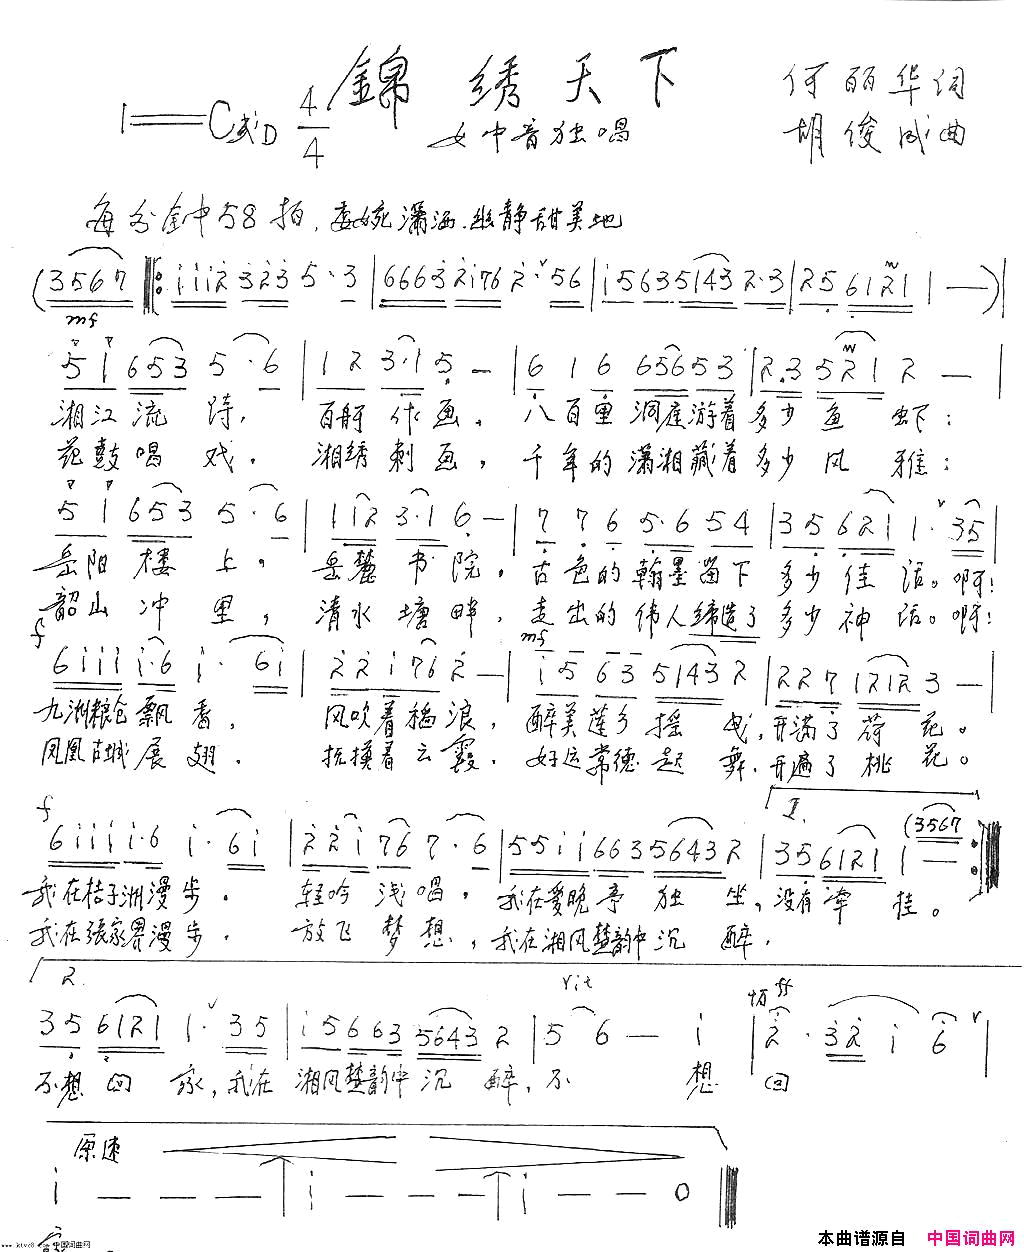 錦 绣 天 下
何丽华词
1=C或D 4/4
女中音独唱
胡俊成曲
每分钟58拍, 委婉潇洒.幽静甜美地
(3567 ‖: 1112 323 5·3 | 6663 2176 2·56 | 15635143 2·3 | 25 6121 1 — ) |
mf
51 653 5·6 | 12 3·1 5 — | 616 65653 | 2.3 5121 2 — |
湘江流 踌, 百舸作画, 八百里洞庭游着多少鱼虾:
花鼓唱戏, 湘绣刺画, 千年的潇湘藏着多少风雅:
51 653 5·6 | 112 3·1 6 — | 776 5·6 54 | 35 621 1·35 |
岳阳楼上, 岳麓书院, 古色的翰墨留下多少佳话。啊!
韶山冲里, 清水塘畔, 走出的伟人缔造了多少神话。啊!
f mf
6111 1·6 1·61 | 221 76 2 — | 15 63 5143 2 | 227 1212 3 — |
九洲粮仓飘香, 风吹着稻浪, 醉美莲乡摇曳,开满了荷花。
凤凰古城展翅, 抚摸着云霞, 好运常德起舞,开遍了桃花。
f I.
6111 1·6 1·61 | 221 76 7·6 | 5511 663 5643 2 | 35 6121 1 — (3567 :‖
我在桔子洲漫步, 轻吟浅唱, 我在爱晚亭独坐,没有牵挂。
我在張家界漫步, 放飞梦想, 我在湘风楚韵中沉醉,
2. rit 切 ff
35 6121 1·35 | 15 663 5643 2 | 5 6 — 1 | 2·32 1 6 |
不想回家,我在湘风楚韵中沉醉,不想回
原速
1 — — — | 1 — — — | 1 — — 0 ‖
家
www.ktvc8.com 中国词曲网
本曲谱源自 中国词曲网